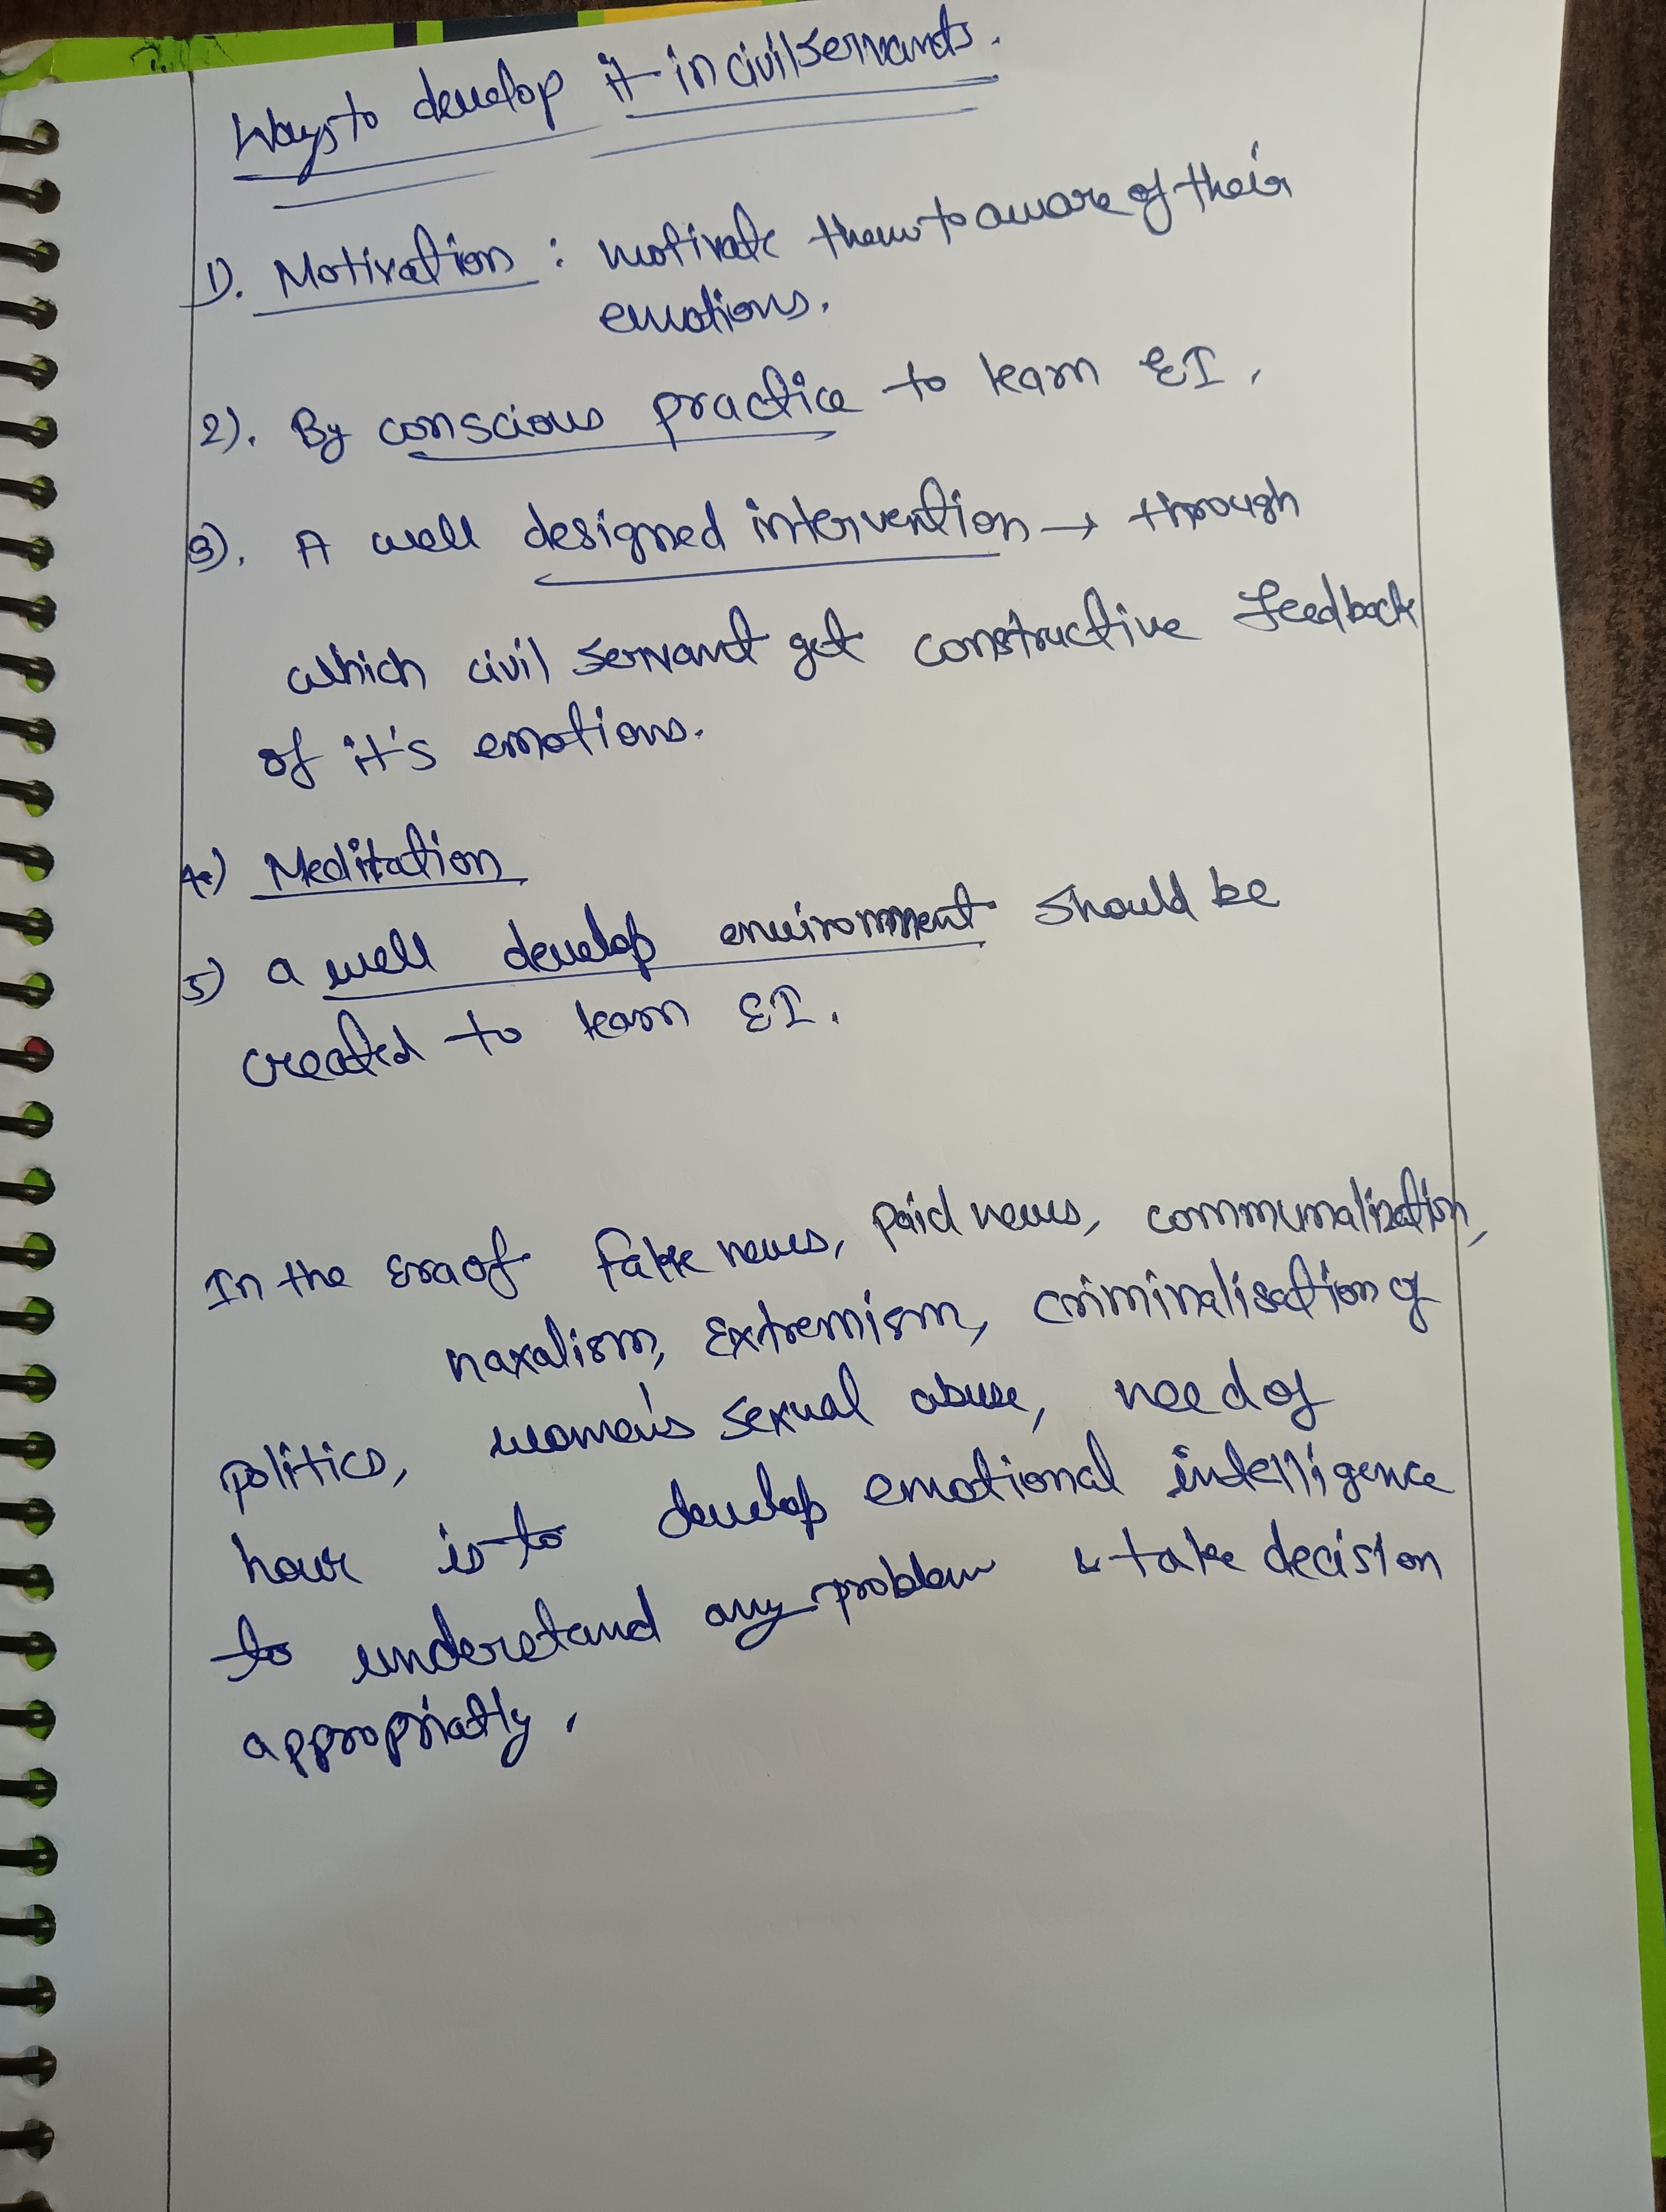 Ways to develop it in civil servants.
1). Motivation : motivate them to aware of their
emotions.
2). By conscious practice to learn EI.
3). A well designed intervention → through
which civil servant get constructive feedback
of it's emotions.
4.) Meditation
5) a well develop environment should be
created to learn EI.
In the Era of fake news, paid news, communalization,
naxalism, Extremism, criminalisation of
politics, women's sexual abuse, need of
hour is to develop emotional intelligence
to understand any problem & take decision
appropriatly.